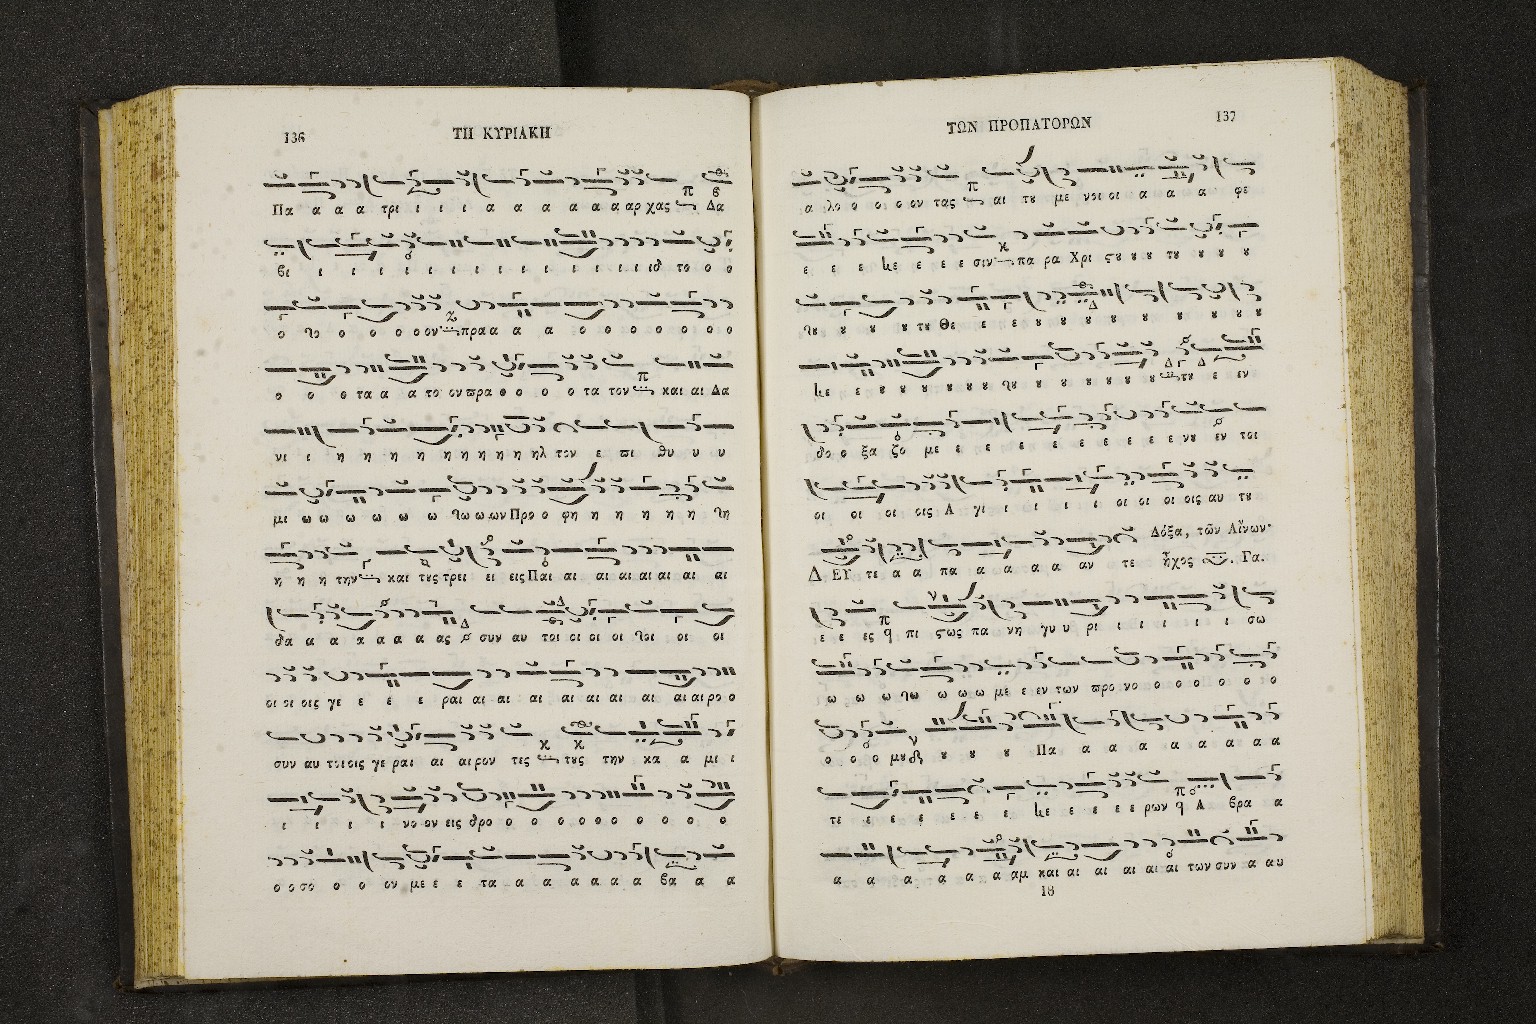 136
ΤΗ ΚΥΡΙΑΚΗ
Πα α α α τρι ι ι ι α α α α α α αρ χας Δα
βι ι ι ι ι ι ι ι ι ι ι ι ι ι ιδ το ο ο
ο ο ο ο ο ο ον πραα α α ο ο ο ο ο ο ο
ο ο ο τα α α το ον πρα ο ο ο ο τα τον και αι Δα
νι ι η η η η η η η η ηλ τον ε πι θυ υ υ
μι ω ω ω ω ω ω ω ω ων Προ ο φη η η η η η
η η η την και τους τρει ει εις Παι αι αι αι αι αι αι αι
δα α α α α α α ας συν αυ τοι οι οι οι οι οι οι
οι οι οις γε ε ε ε ραι αι αι αι αι αι αι αι αι αι ρο ο
συν αυ τοι οις γε ραι αι αι ρον τες τους την κα α μι ι
ι ι ι ι νο ον εις δρο ο ο ο ο ο ο ο ο ο ο
ο ο σο ο ο ον με ε ε τα α α α α α α βα α α
137
ΤΩΝ ΠΡΟΠΑΤΟΡΩΝ
α λο ο ο ο ον τας αι του με νοι οι α α α φε
ε ε ε ε ε ε ε σιν πα ρα Χρι στου ου ου του ου ου ου
ου ου ου ου του Θε ε ε ου ου ου ου ου ου ου ου ου
ε ε ου ου ου ου ου ου ου ου ου ου ου ου ου ου του ε εν
δο ο ξα ζο με ε ε ε ε ε ε ε ε ε νου εν τοι
οι οι οι οις Α γι ι ι ι ι οι οι οι οις αυ του
Δόξα, τῶν Αἴνων·
ΔΕΥ τε α α πα α α α α αν τε ἦχος Γα.
ε ε ες πι στως πα νη γυ υ ρι ι ι ι ι ι σω
ω ω ω ω ω ω ω με ε εν των προ νο ο ο ο ο ο ο
ο ο ο μου ου ου ου Πα α α α α α α α α α
τε ε ε ε ε ε ε ε ε ε ε ε ρων Α βρα α
α α α α α α αμ και αι αι αι αι αι των συν α αυ
18